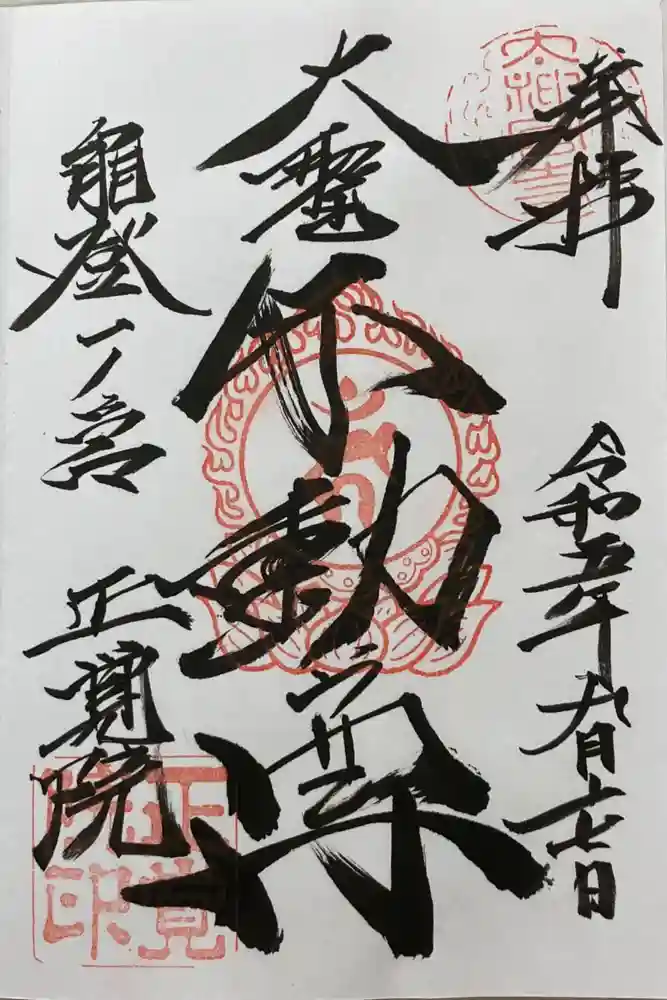 奉拝
令和五年九月十七日
大聖
不動尊
能登一ノ宮
正覚院
正覚院印